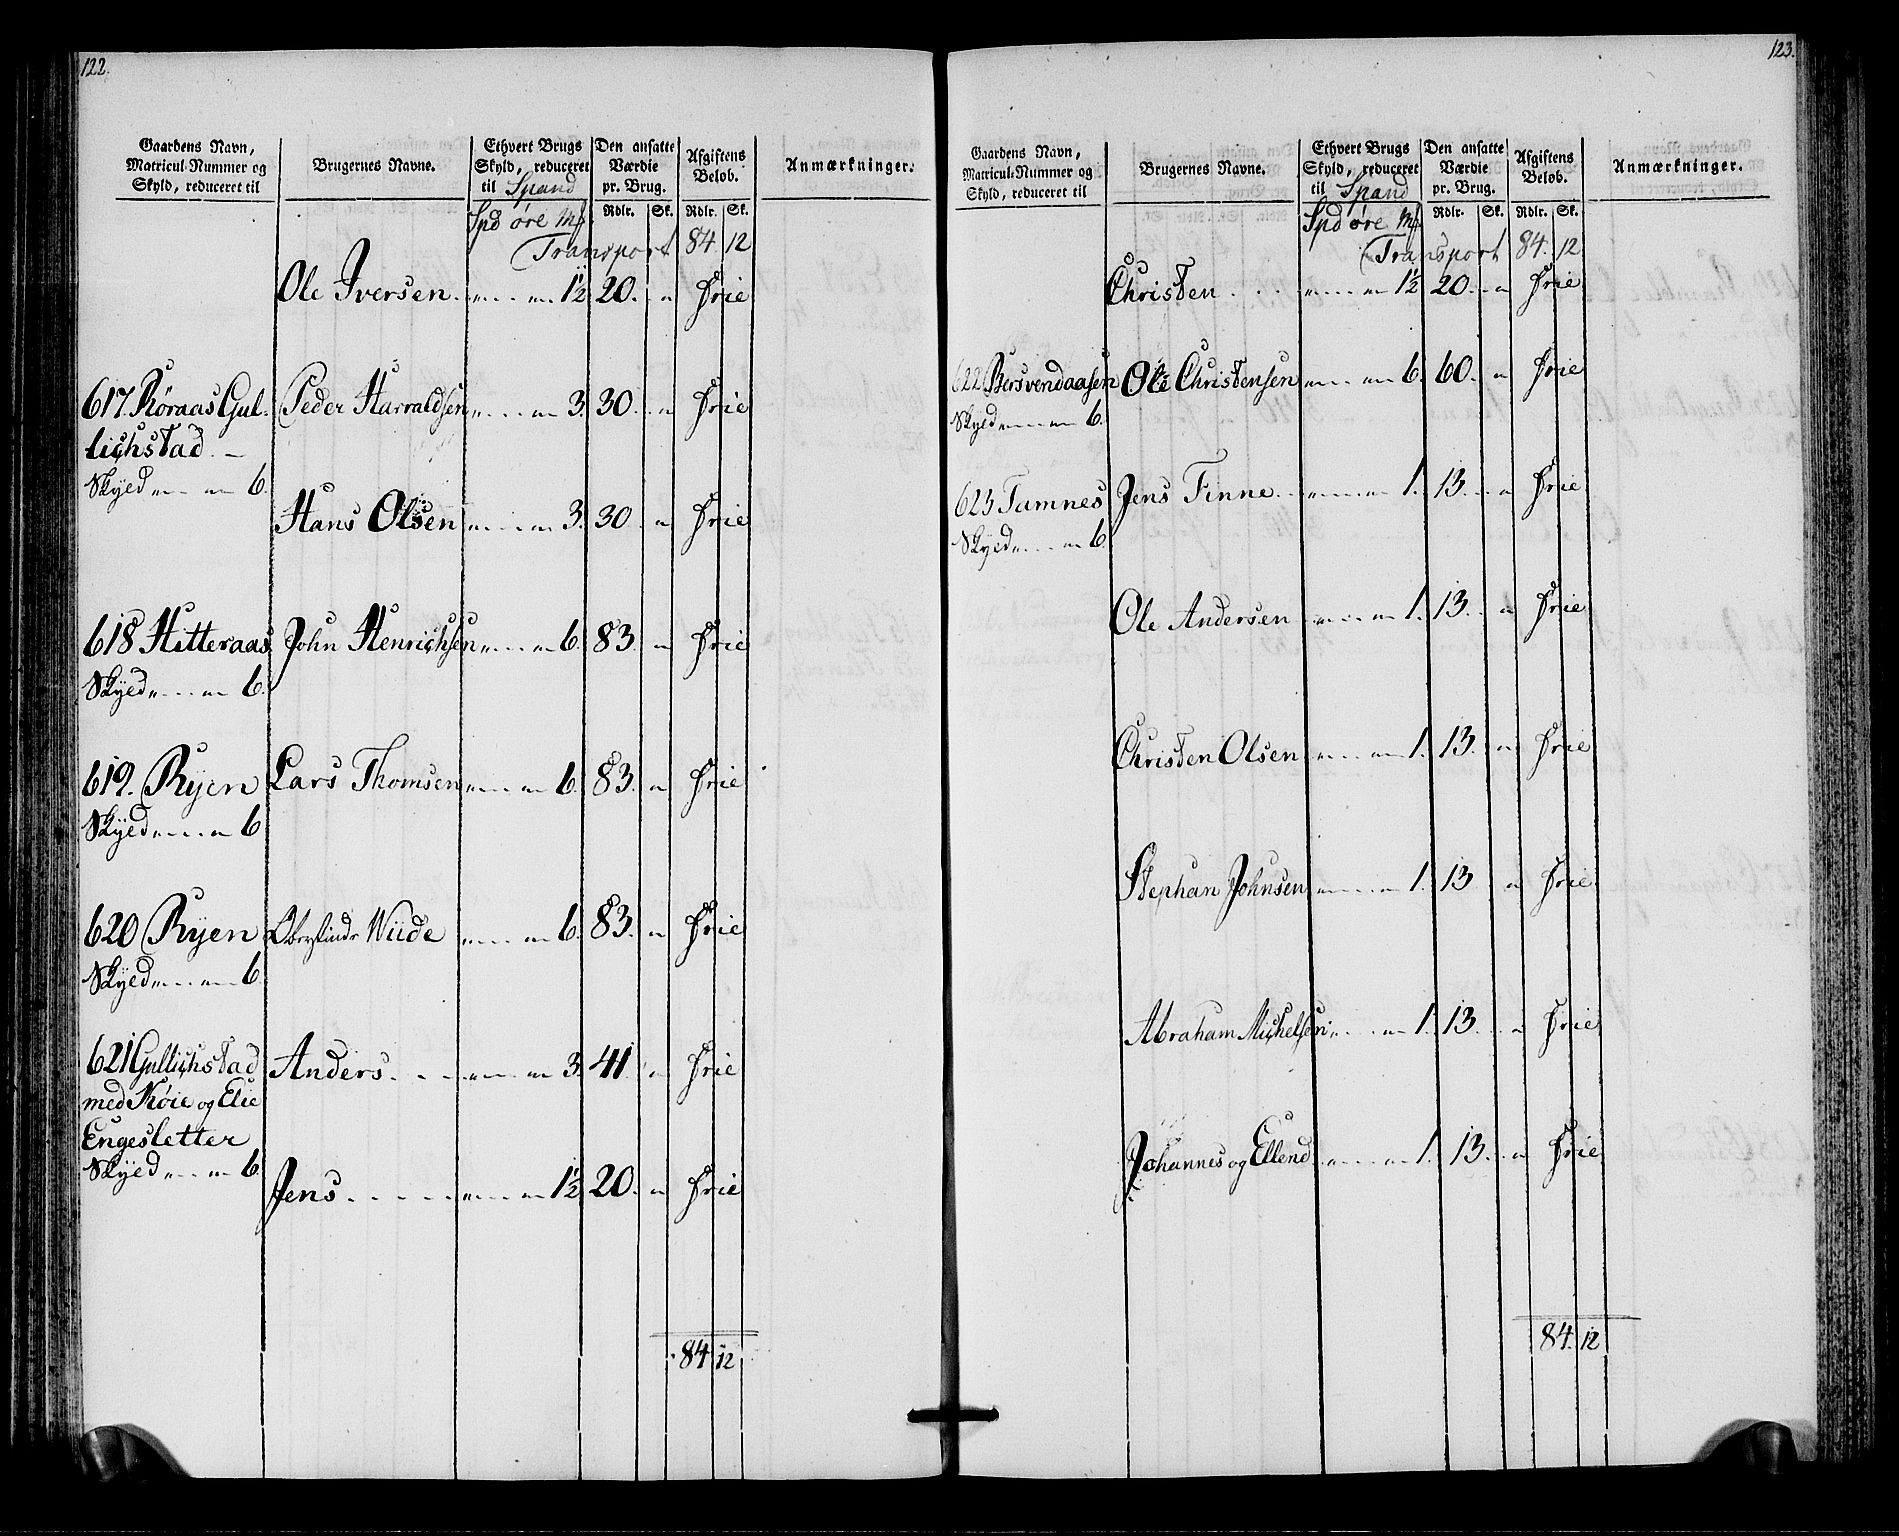 122.
Gaardens Navn,
Matricul-Nummer og
Skyld, reduceret til
Brugernes Navne.
Ethvert Brugs
Skyld, reduceret
til Spand
Den ansatte
Værdie
pr. Brug.
Afgiftens
Beløb.
Anmærkninger.
Spd øre Mf Rdlr. Sk. Rdlr. Sk.
Transport 84 12
Ole Iversen. „ „ 1½ 20. „ frie
617. Røraas Gul- Peder Harraldsen „ „ 3. 30. „ frie
lichstad. —
Skyed „ „ 6.
Hans Olsen „ „ 3. 30 „ frie
618 Hitteraas John Henrichsen „ „ 6. 83. „ frie
Skyed „ „ 6.
619. Ryen Lars Thomsen „ „ 6. 83. „ frie
Skyed „ „ 6
620 Ryen Wiide „ „ 6. 83. „ frie
Skyed „ „ 6
621 Gullichstad Anders „ „ 3. 41 „ frie
med Køie og Elie
Engesletter
Skyed „ „ 6.
Jens „ „ 1½ 20. „ frie
84 12
123.
Gaardens Navn,
Matricul-Nummer og
Skyld, reduceret til
Brugernes Navne.
Ethvert Brugs
Skyld, reduceret
til Spand
Den ansatte
Værdie
pr. Brug.
Afgiftens
Beløb.
Anmærkninger.
Spd øre Mf Rdlr. Sk. Rdlr. Sk.
Transport 84. 12
Christen „ „ 1½ 20. „ frie
622 Bersvendaasen Ole Christensen „ „ 6. 60. „ frie
Skyed „ „ 6.
623 Tamnes Jens Finne „ „ 1. 13. „ frie
Skyed „ „ 6.
Ole Andersen „ „ 1. 13. „ frie
Christen Olsen „ „ 1. 13. „ frie
Stephan Johnsen „ „ 1. 13 „ frie
Abraham Michelsen „ „ 1. 13. „ frie
Johannes og Ellend „ „ 1. 13. „ frie
84. 12